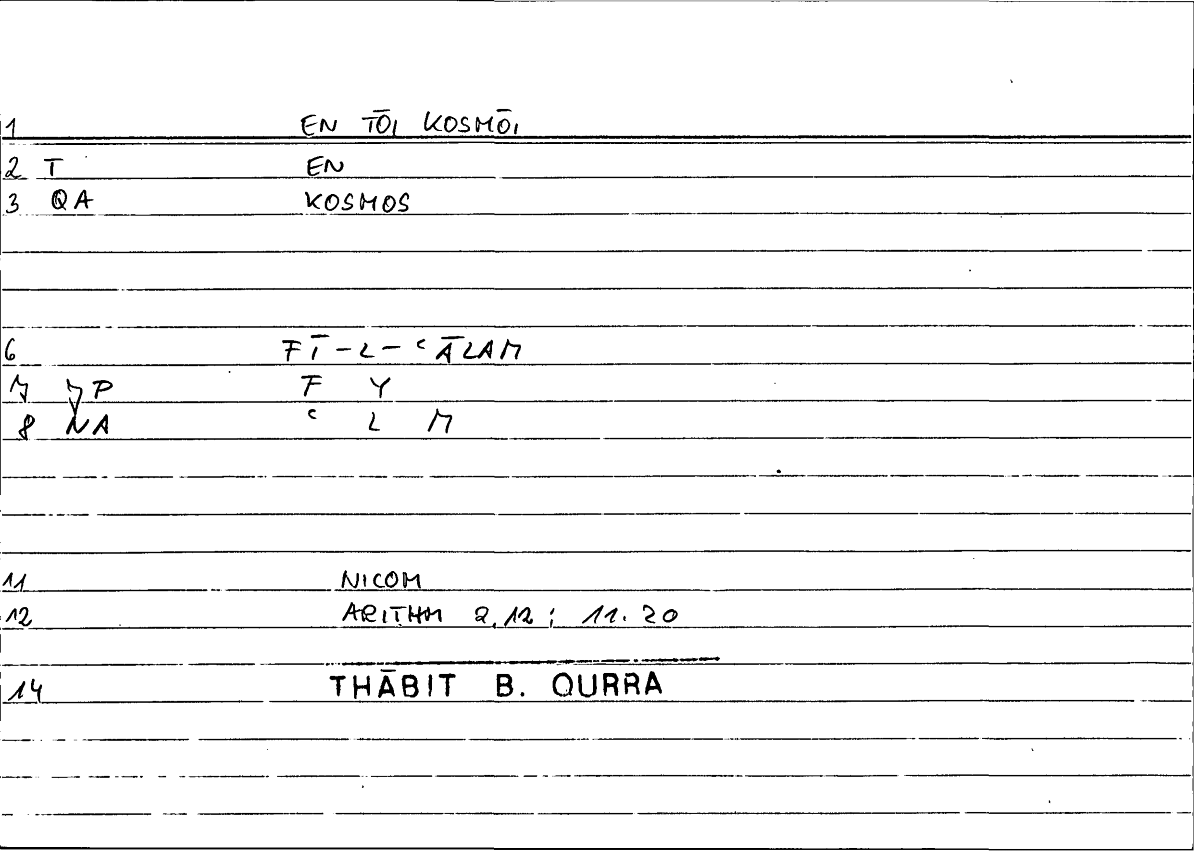 1 EN TŌI KOSMŌI
2 T EN
3 QA KOSMOS
6 FĪ-L-ʿĀLAM
7 JP F Y
8 NA ʿ L M
11 NICOM
12 ARITHM 2,12; 11.20
14 THĀBIT B. QURRA